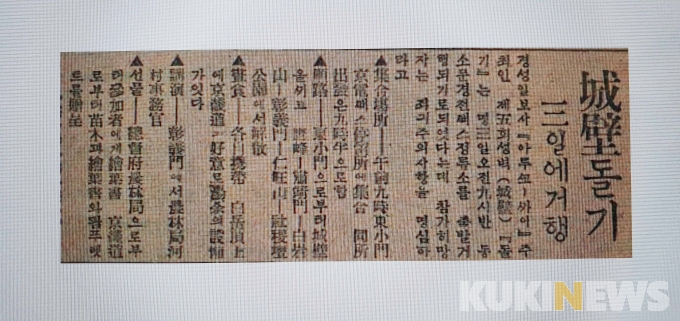 城壁돌기
三일에거행
경성일보사 『아루꼬-싸이』 주
최인 제五회성벽(城壁)『돌
기』는 명三일오전九시반 동
소문경전뻐스정류소를 출발거
행되기로되엿다는데 참가히망
자는 좌긔주의사항을 명심하
라고
▲集合場所──午前九時東小門
京電뻐스停留所에集合 同所
出發은九時半으로함
▲順路──東小門으로부터城壁
을끼고 鷹峰─肅靖門─白岩
山─彰義門─仁旺山─社稷壇
公園에서解散
▲晝食──各自携帶 白岳頂上
에京畿道의好意로湯茶의設備
가잇다
▲講演──彰義門에서農林局河
村事務官
▲선물──總督府農林局으로부
터參加者에게繪葉書 京畿道
로부터苗木과繪葉書와팜푸렛
트를贈呈
KUKINEWS